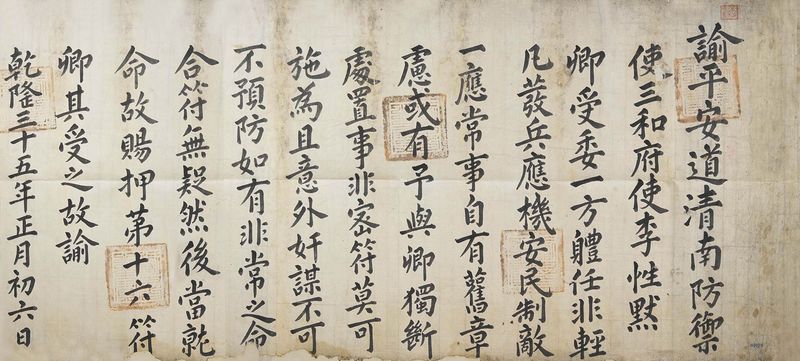 諭平安道清南防禦
使三和府使李性默
卿受委一方軆任非輕
凡發兵應機安民制敵
一應常事自有舊章
慮或有予與卿獨斷
處置事非密符莫可
施為且意外奸謀不可
不預防如有非常之命
合符無疑然後當就
命故賜押第十六符
卿其受之故諭
乾隆三十五年正月初六日